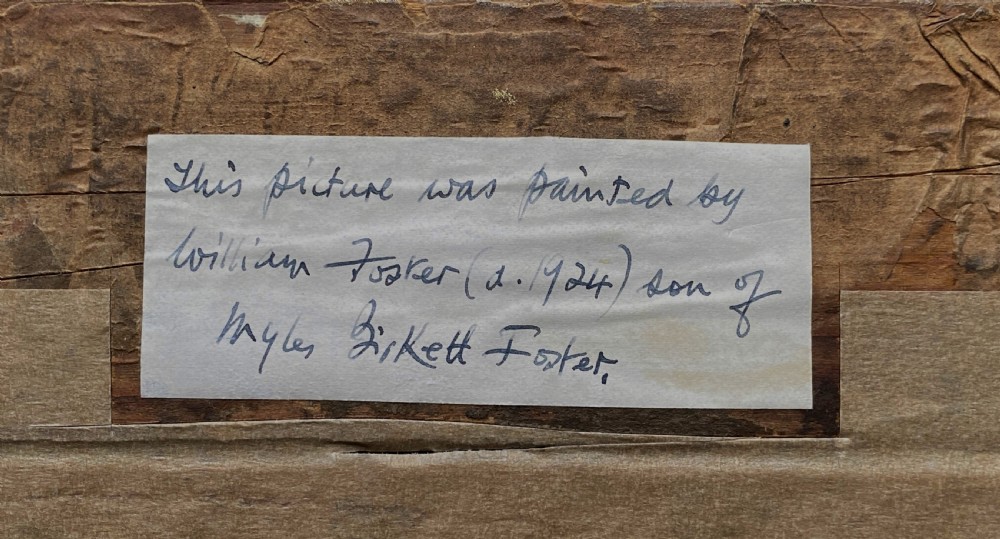 This picture was painted by
William Foster (d. 1924) son of
Myles Birkett Foster.